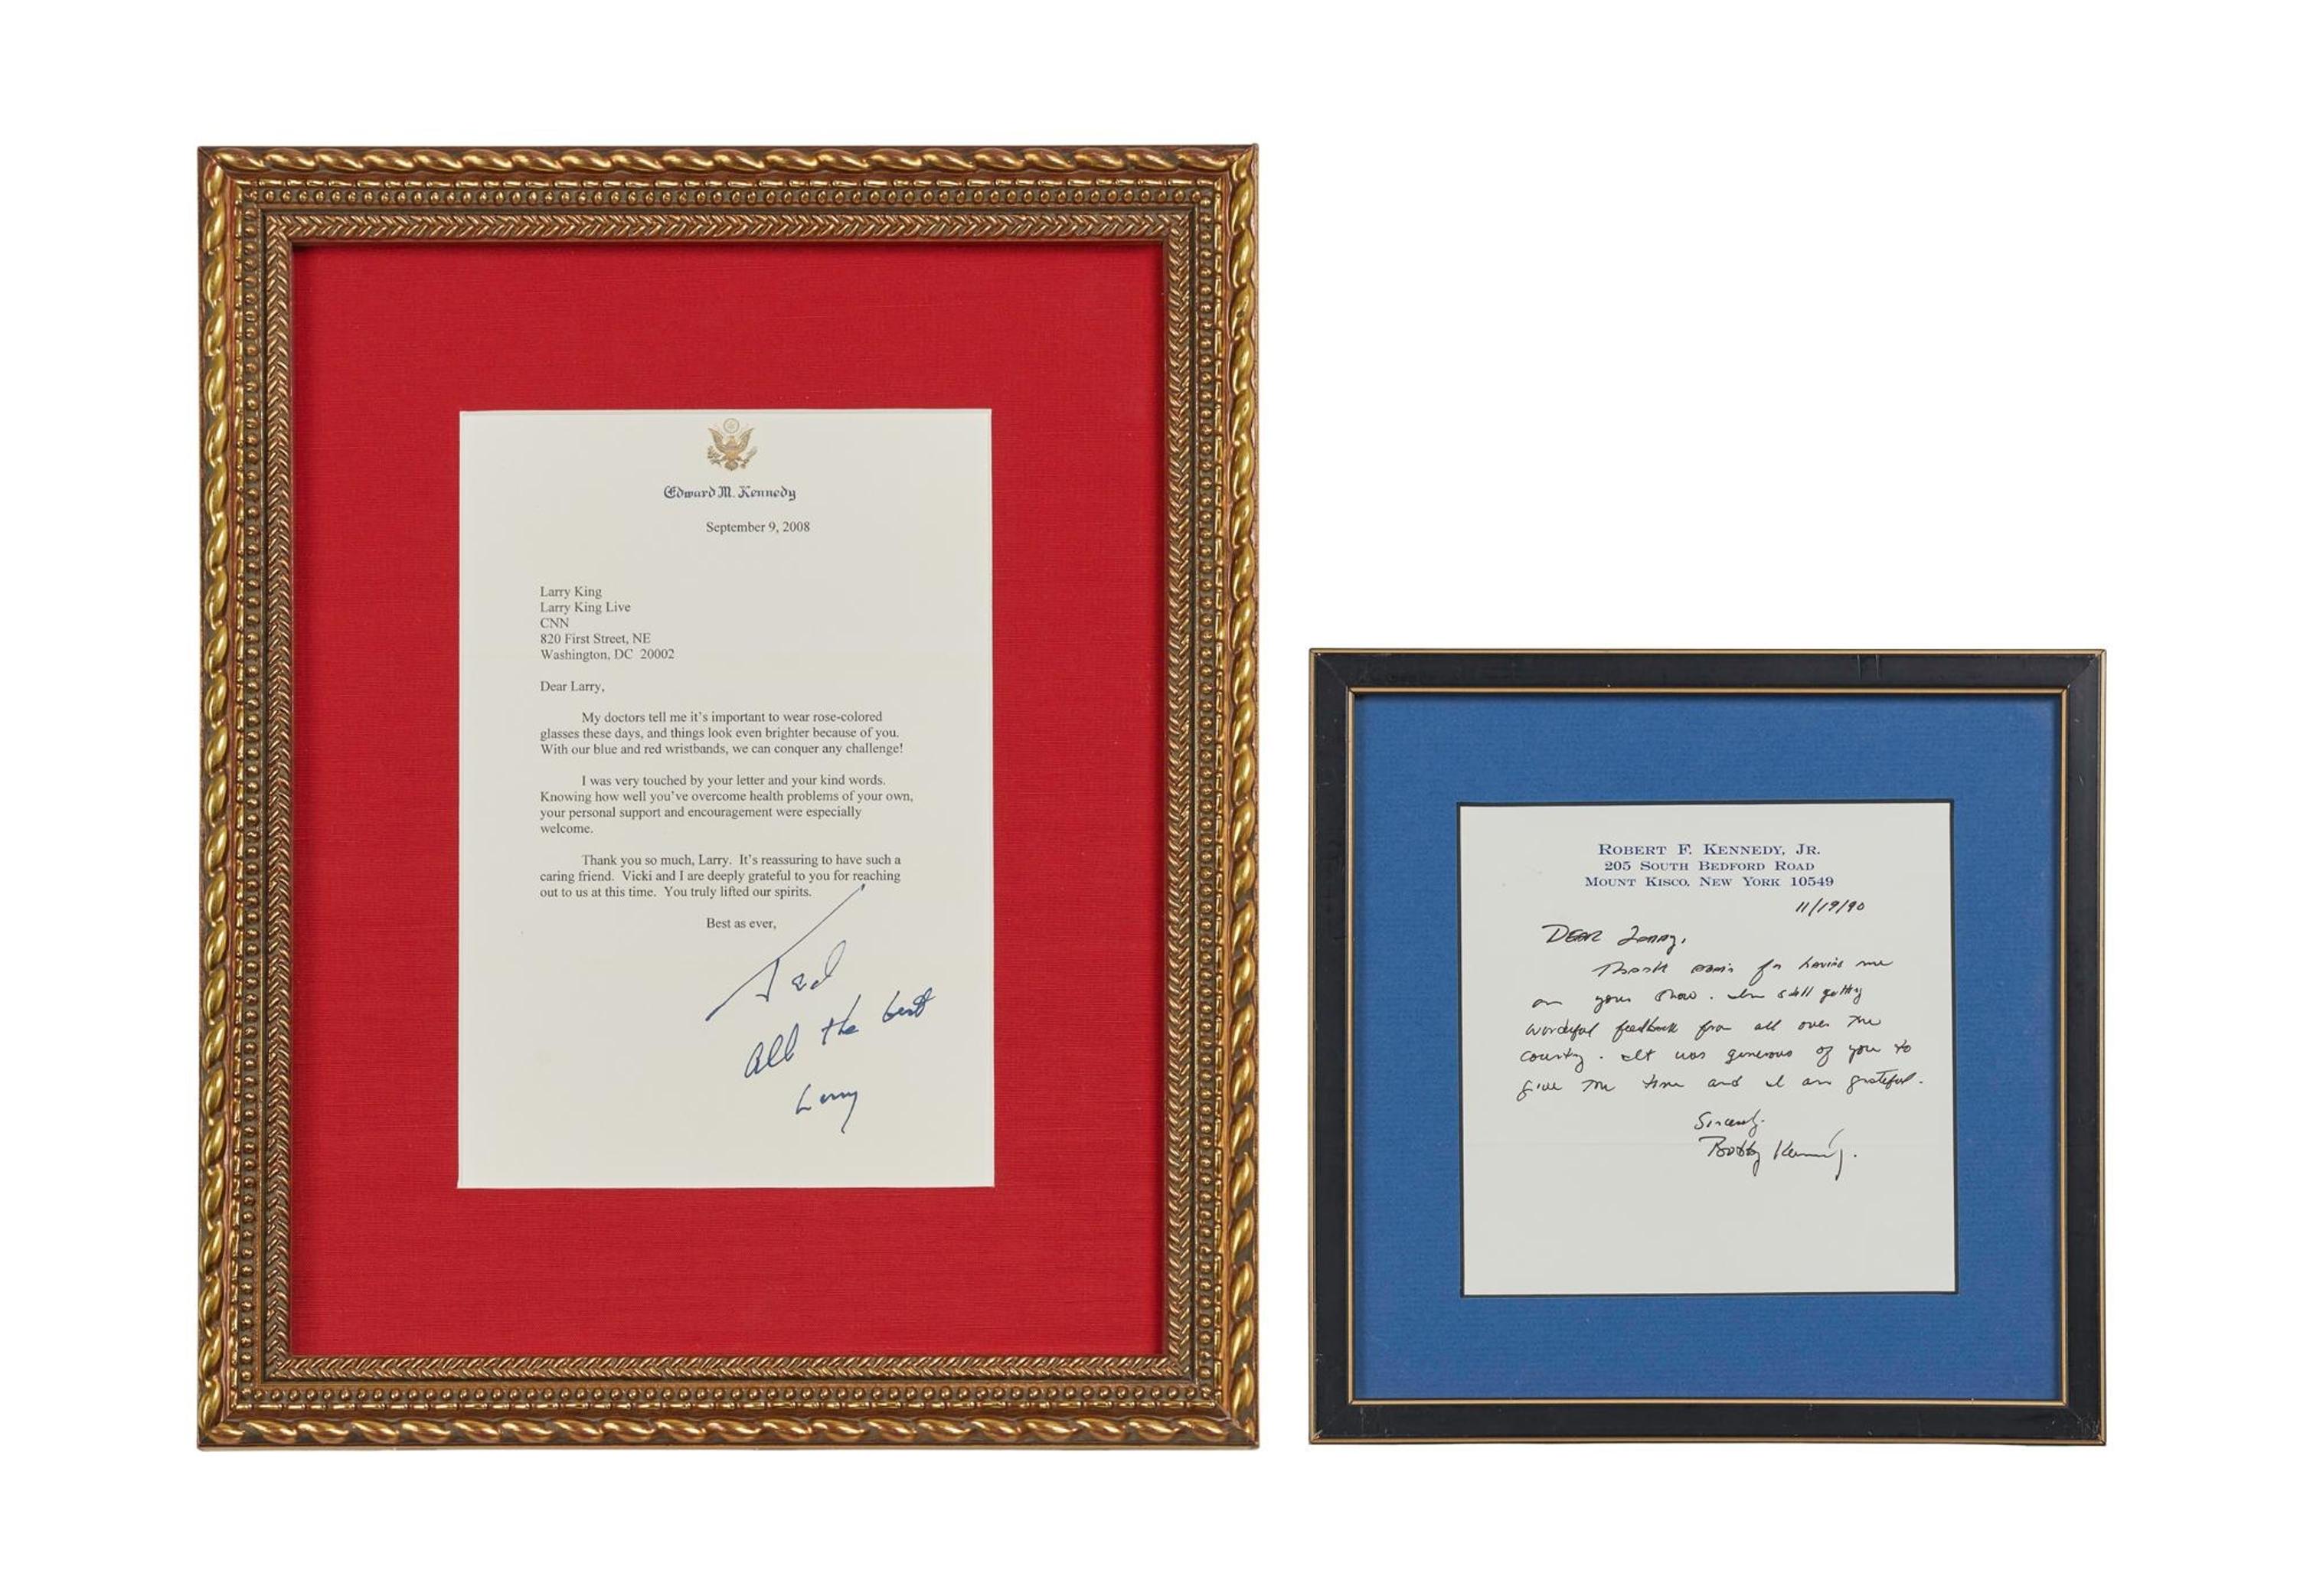 Edward M. Kennedy
September 9, 2008
Larry King
Larry King Live
CNN
820 First Street, NE
Washington, DC 20002
Dear Larry,
My doctors tell me it's important to wear rose-colored
glasses these days, and things look even brighter because of you.
With our blue and red wristbands, we can conquer any challenge!
I was very touched by your letter and your kind words.
Knowing how well you've overcome health problems of your own,
your personal support and encouragement were especially
welcome.
Thank you so much, Larry. It's reassuring to have such a
caring friend. Vicki and I are deeply grateful to you for reaching
out to us at this time. You truly lifted our spirits.
Best as ever,
Ted
All the best
Larry
ROBERT F. KENNEDY, JR.
205 SOUTH BEDFORD ROAD
MOUNT KISCO, NEW YORK 10549
11/19/90
DEAR Larry,
Thank again for having me
on your show. I'm still getting
wonderful feedback from all over the
country. It was generous of you to
give me time and I am grateful.
Sincerely,
Bobby Kennedy